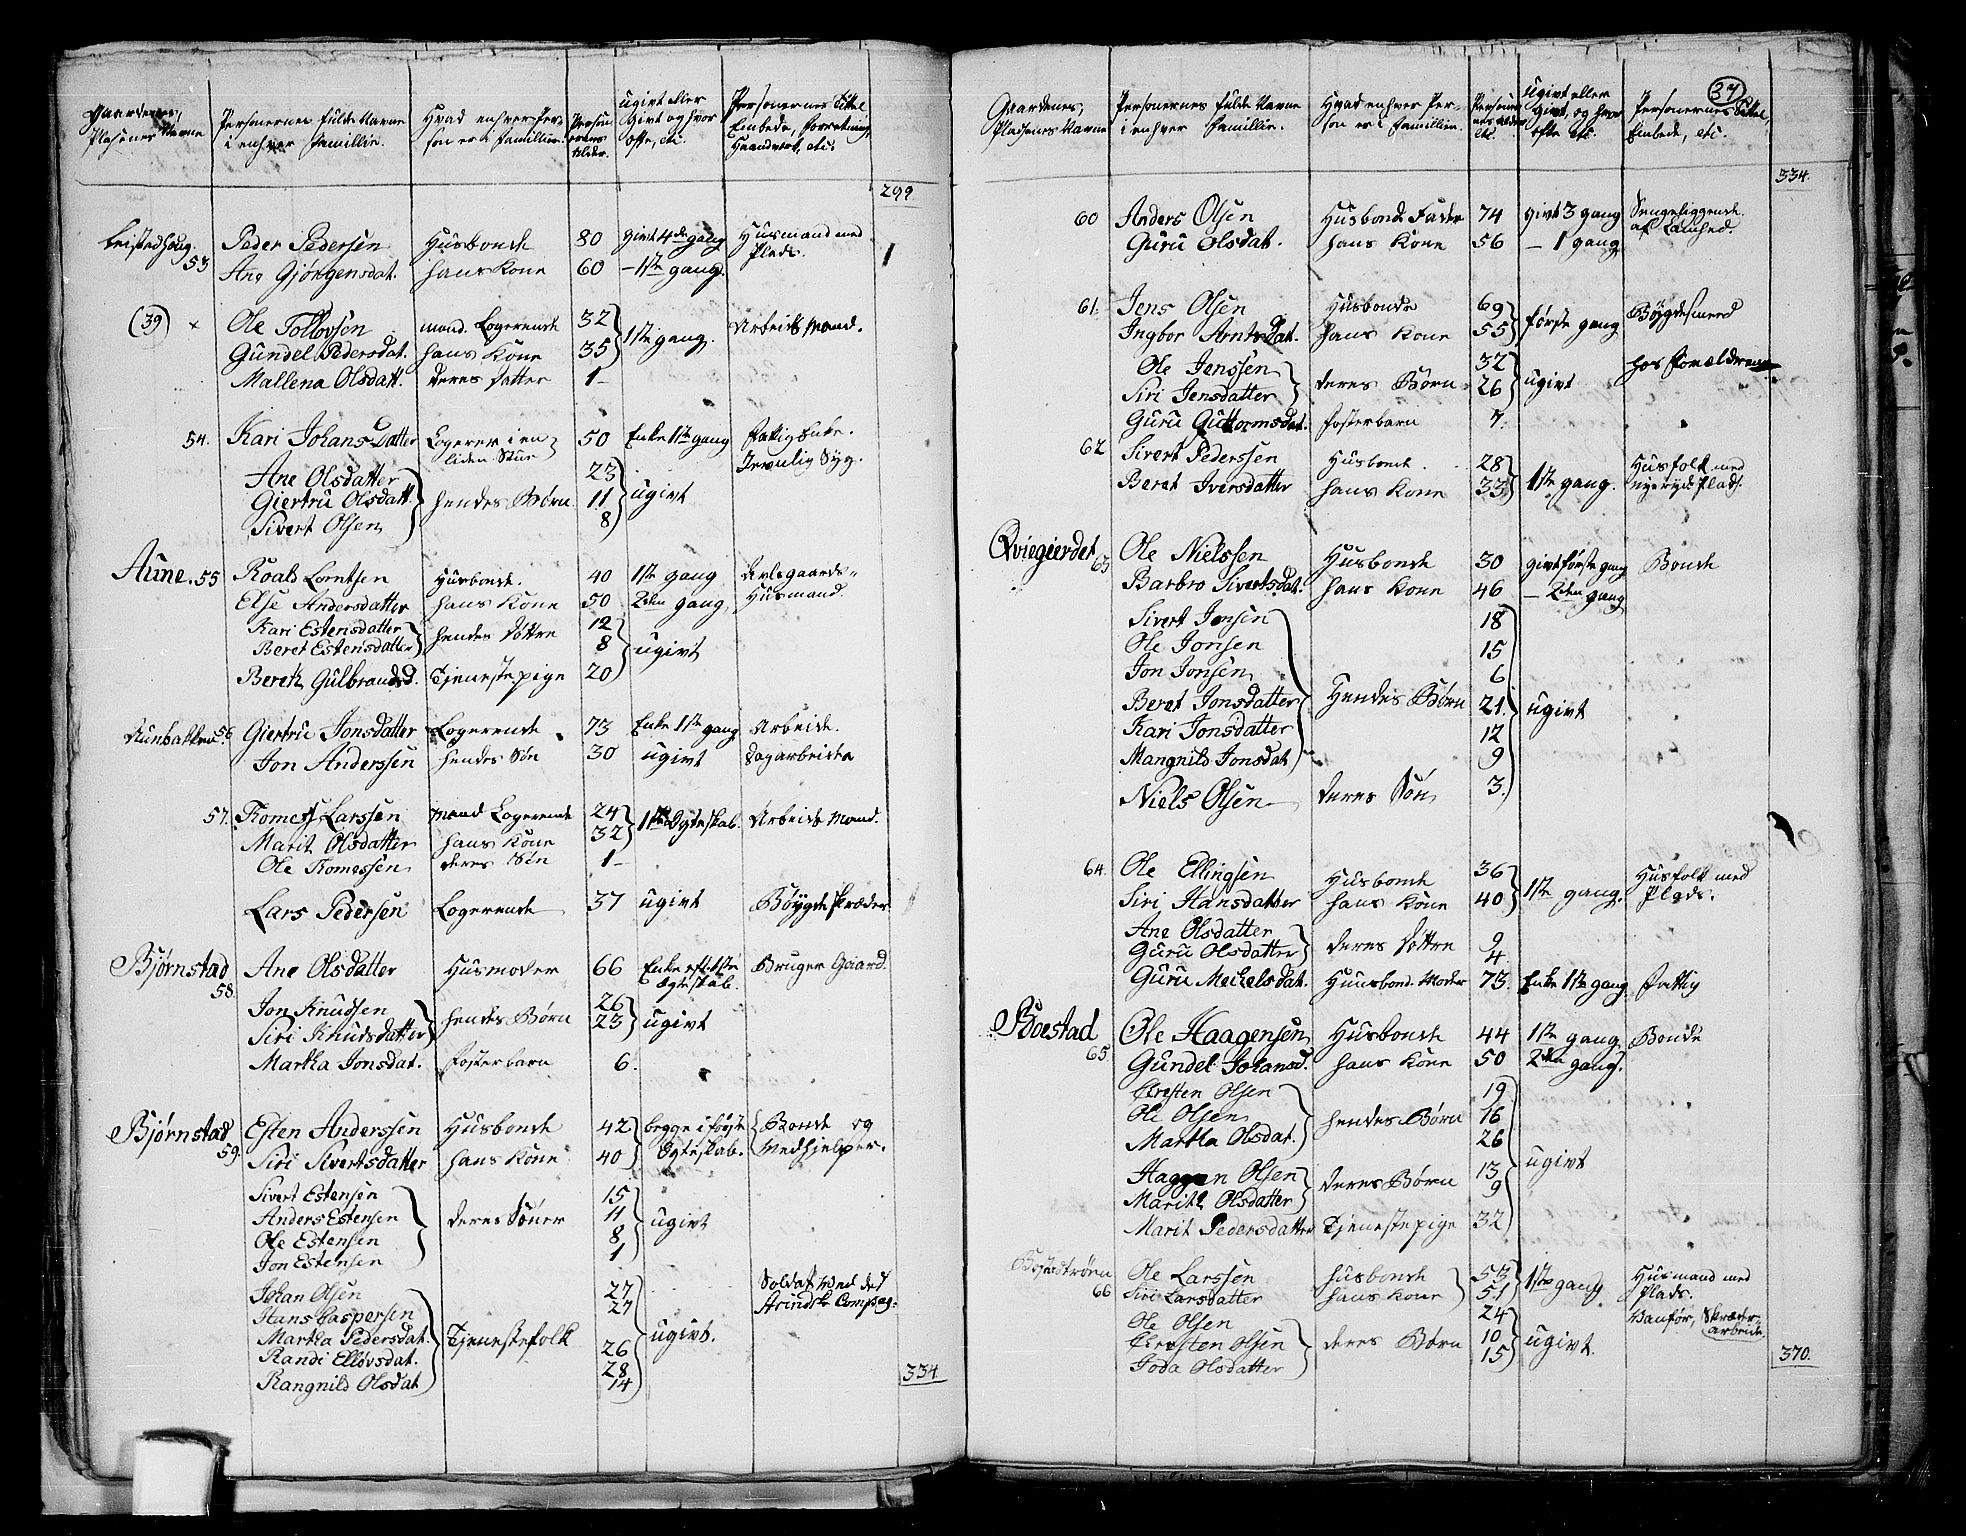 Gaardenes, Pladsenes Navne | Personernes fulde Navne i enhver Familie. | Hvad enhver Person er i Familien. | Personernes Alder. | Ugivt eller Givt og hvor ofte, etc. | Personernes Tittel Embede, Forretning Haandverk, etc.
299
Leistedhoug. 53 Peder Pedersen Husbonde 80 Givt 4de gang Husmand med Plads. 1
Ane Gjørgensdat. hans Kone 60 – 1ste gang.
(39) × Ole Tollovsen mand. Logerende 32 1ste gang. Arbeids Mand.
Gundel Pedersdat. hans Kone 35
Mallena Olsdatt. deres Datter 1–
54. Kari Johans Datter Logerer i en liden Stue 50 Enke 1ste gang Fattig Enke. Jevnlig Syg.
Ane Olsdatter 23
Giertru Olsdatt. hendes Børn 11 ugivt
Sivert Olsen 8
Aune. 55 Roals Lorntsen Husbonde. 40 1ste gang Husmand.
Else Andersdatter hans Kone 50 2den gang.
Kari Estensdatter 12
Beret Estensdatter hendes Døttre 8 ugivt
Bereth Gulbrandsd. Tjenestepige 20
Aunbakken 56 Giertru Jonsdatter Logerende 73 Enke 1ste gang Arbeide.
Jon Anderssen hendes Søn 30 ugivt Dagarbeide
57. Tomes Larssen Mand Logerende 24 1ste Egteskab. Arbeids Mand.
Marit Olsdatter hans Kone 32
Ole Tomessen deres Søn 1–
Lars Pedersen Logerende 37 ugivt Bøygdeskræder
Bjørnstad 58. Ane Olsdatter Husmoder 66 Enke eft. 1ste Egteskab. Bruger Gaard.
Jon Knudsen 26
Siri Knudsdatter hendes Børn 23 ugivt
Martha Jonsdat. Fosterbarn 6.
Bjørnstad 59. Esten Anderssen Husbonde 42 begge i føste Egteskab. Bonde og Medhjelper.
Siri Sivertsdatter hans Kone 40
Sivert Estensen 15
Anders Estensen deres Søner 11 ugivt
Ole Estensen 8
Jon Estensen 1
Johan Olsen 27 Soldat ved det
Hans Caspersen 27
Martha Pedersdat. Tjenestefolk 26 ugivt.
Randi Ellovsdat. 28
Rangnild Olsdat 14
334
(37)
Gaardenes, Pladsenes Navne | Personernes fulde Navne i enhver Familie. | Hvad enhver Person er i Familien. | Personernes Alder etc. | Ugivt eller Givt, og hvor ofte etc. | Personernes Tittel, Embede, etc.
334.
60 Anders Olsen Husbonde Fader 74 givt 3 gang Sengeliggende af Lamhed.
Guru Olsdat. hans Kone 56 – 1 gang
61. Jens Olsen Husbonde 69 første gang Bøygdesmed
Ingbor Arntsdat. hans Kone 55
Ole Jenssen 32 hos Forældrene
Siri Jensdatter deres Børn 26 ugivt
Guru Guttormsdat. Fosterbarn 7.
62 Sivert Pederssen Husbonde. 28 1ste gang. Husfolk med
Beret Iversdatter hans Kone 33
Qviegierdet 63 Ole Nielssen Husbonde 30 givt første gang Bonde
Barbro Sivertsdat. hans Kone 46 – 2den gang
Sivert Jonsen 18
Ole Jonsen 15
Jon Jonsen 6
Beret Jonsdatter Hendes Børn 21. ugivt
Kari Jonsdatter 12
Mangnild Jonsdat 9
Niels Olsen deres Søn 3.
64. Ole Ellingsen Husbonde 36 1ste gang. Husfolk med Plads.
Siri Hansdatter hans Kone 40
Ane Olsdatter 9
Guru Olsdatter deres Døttre 4.
Guru Michelsdat. Huusbond. Moder 73. Enke 1ste gang Fattig
Boestad 65 Ole Haagensen Husbonde 44 1ste gang Bonde
Gundel Johansd. hans Kone 50 2den gang.
Christen Olsen 19
Ole Olsen hendes Børn 16
Martha Olsdat. 26
Haagen Olsen 13 ugivt
Marith Olsdatter deres Børn 9
Marit Pedersdatter Tjenestepige 32
66 Ole Larssen husbonde 53 1ste gang Husmand med Plads.
Siri Larsdatter hans Kone 51
Ole Olsen 24 Vanfør, Skræder-arbeide.
Christen Olsen deres Børn 10 ugivt.
Joda Olsdatter 15
370.